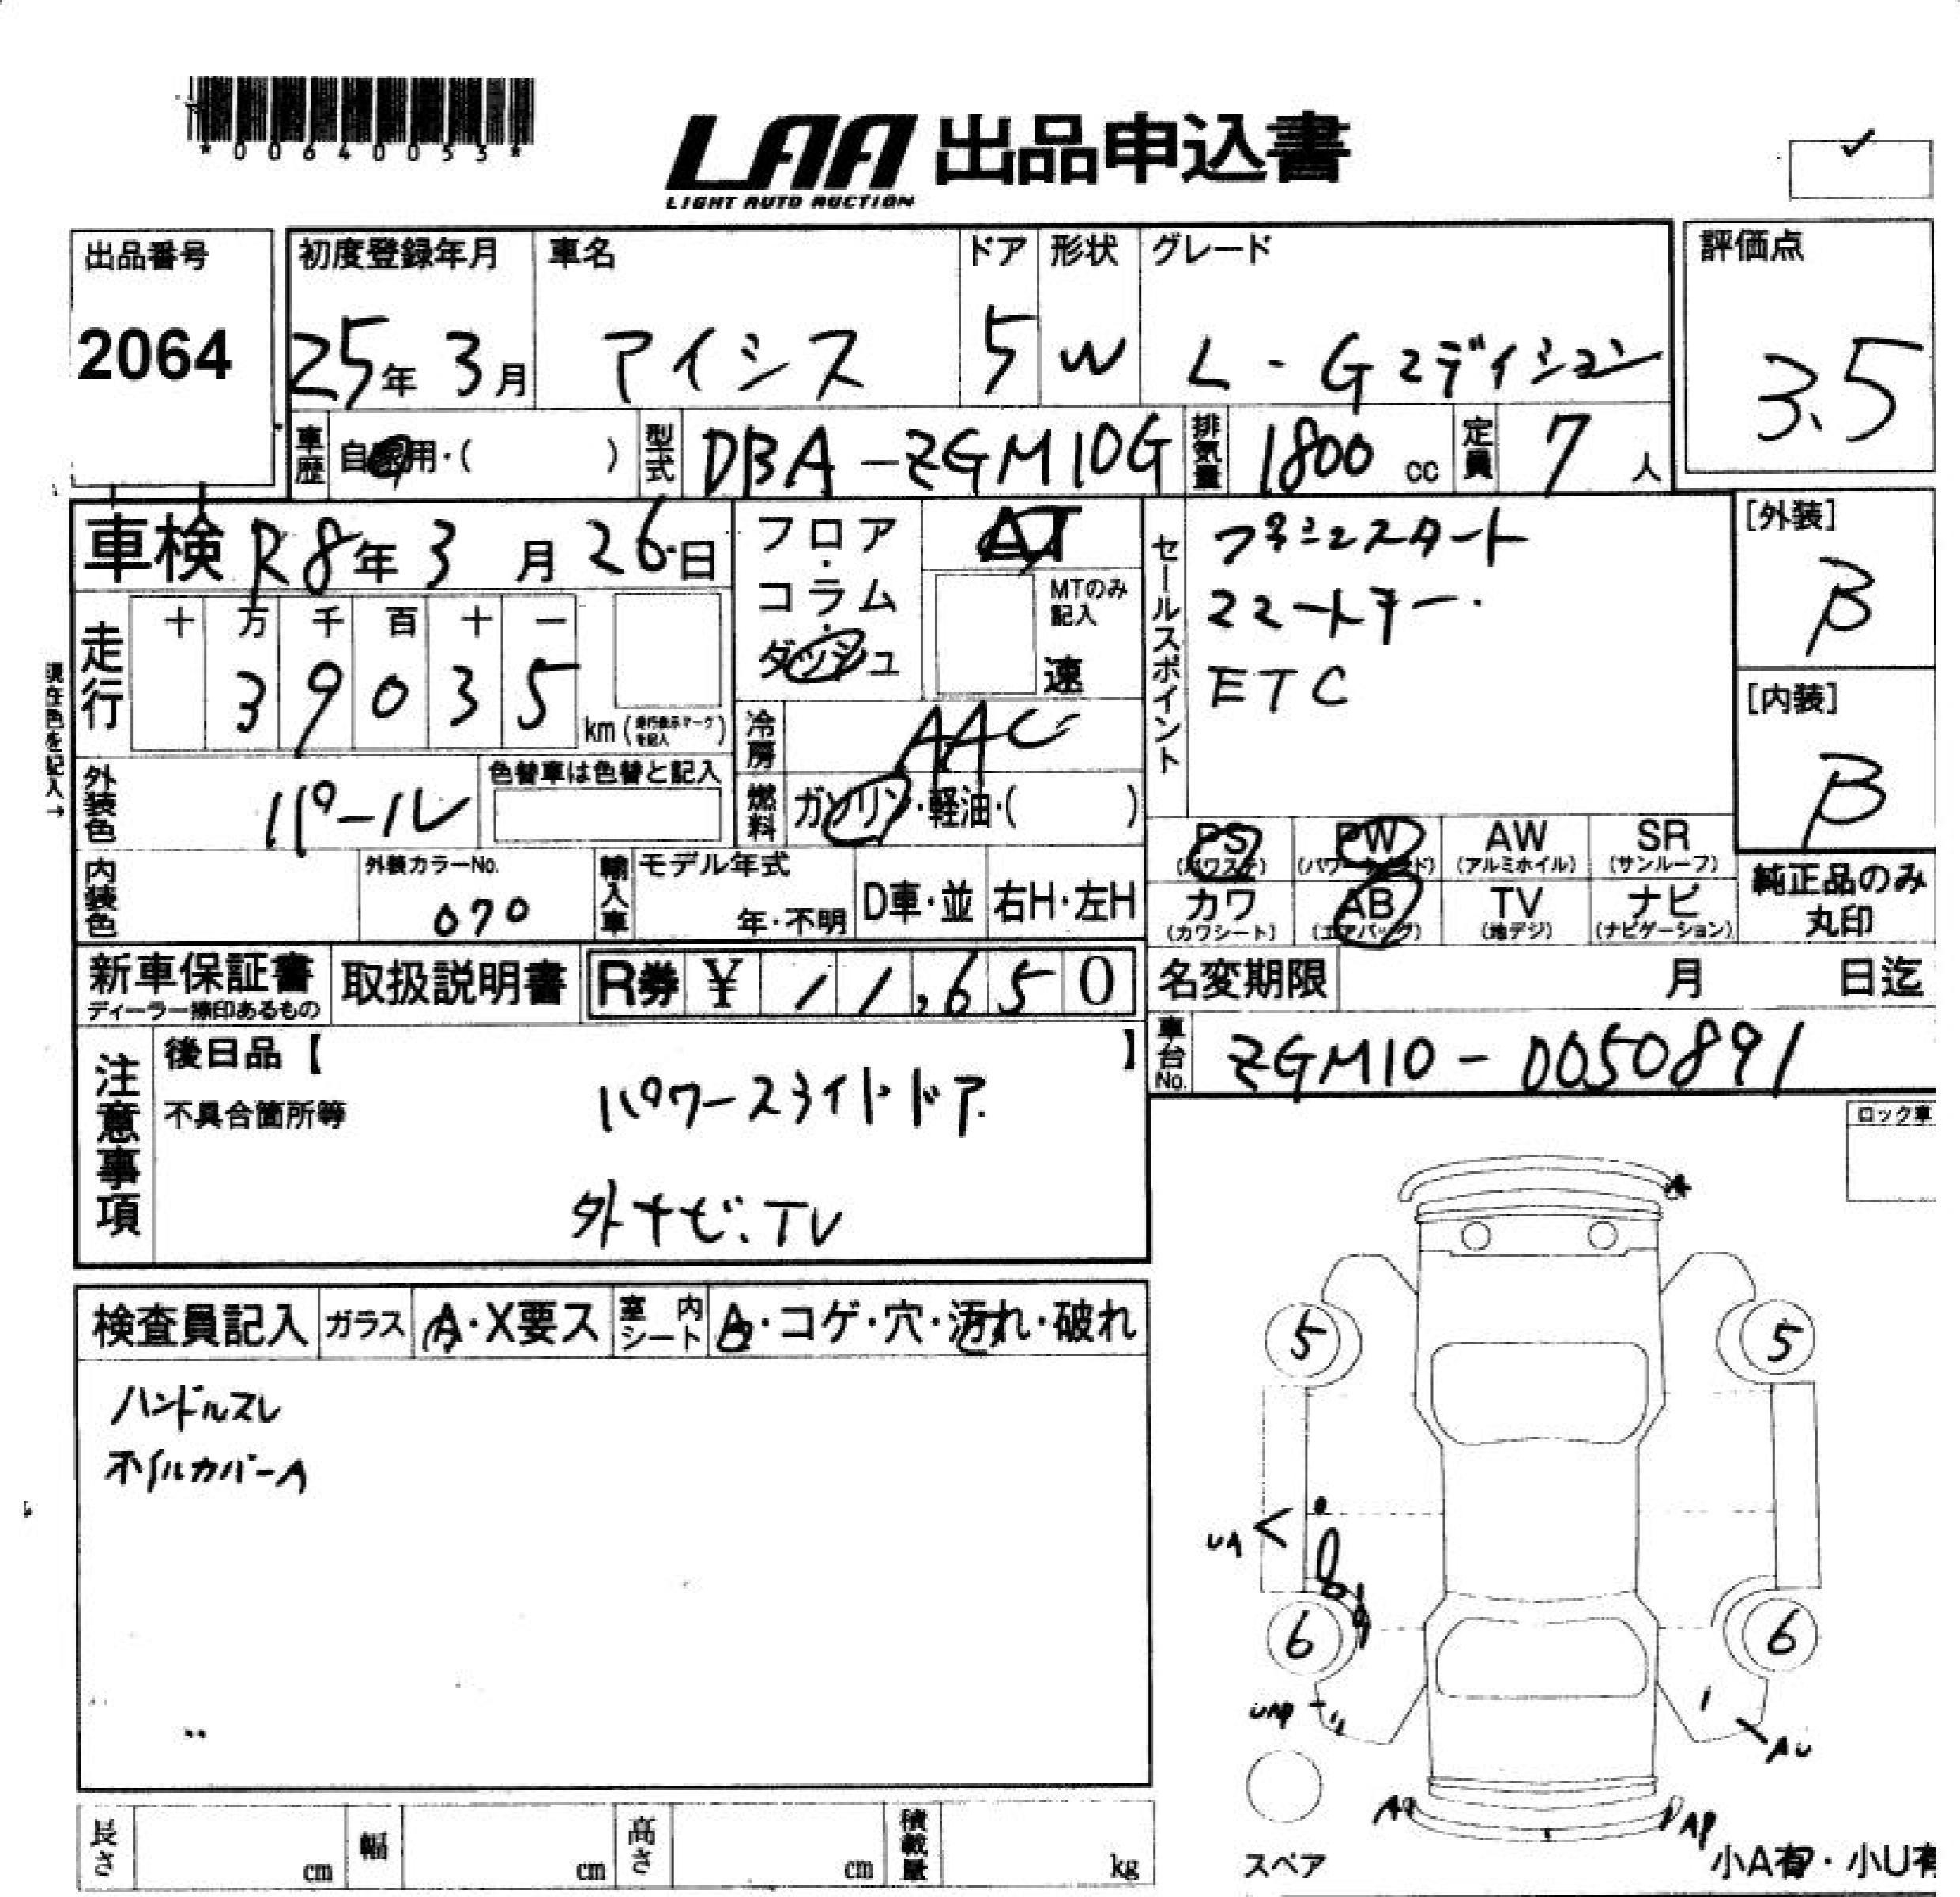 *00640053*
LAA 出品申込書
LIGHT AUTO AUCTION
出品番号
2064
初度登録年月
25年 3月
車名
アイシス
ドア
5
形状
W
グレード
L-Gエディション
評価点
3.5
車歴 自家用・( )
型式 DBA-ZGM10G
排気量 1800 cc
定員 7 人
車検 R8年 3月 26日
走行
十 万 千 百 十 一
3 9 0 3 5
km (走行表示マークを記入)
現在色を記入→
フロア・コラム・ダッシュ
AT
MTのみ記入
速
冷房 AAC
燃料 ガソリン・軽油・( )
セールスポイント
プッシュスタート
スマートキー.
ETC
[外装]
B
[内装]
B
外装色 パール
色替車は色替と記入
内装色
外装カラーNo.
070
輸入車
モデル年式
年・不明
D車・並
右H・左H
PS
(パワステ)
PW
(パワーウィンド)
AW
(アルミホイル)
SR
(サンルーフ)
カワ
(カワシート)
AB
(エアバッグ)
TV
(地デジ)
ナビ
(ナビゲーション)
純正品のみ
丸印
新車保証書
ディーラー捺印あるもの
取扱説明書
R券 ¥ 11,650
名変期限 月 日迄
車台No. ZGM10-0050891
注意事項
後日品【 】
不具合箇所等
パワースライドドア.
外ナビ.TV
ロック車
検査員記入
ガラス A・X要ス
室内シート A・コゲ・穴・汚れ・破れ
ハンドルスレ
ホイルカバーA
A
5
5
UA
6
6
AU
A
AP
スペア
小A有・小U有
長さ cm
幅 cm
高さ cm
積載量 kg